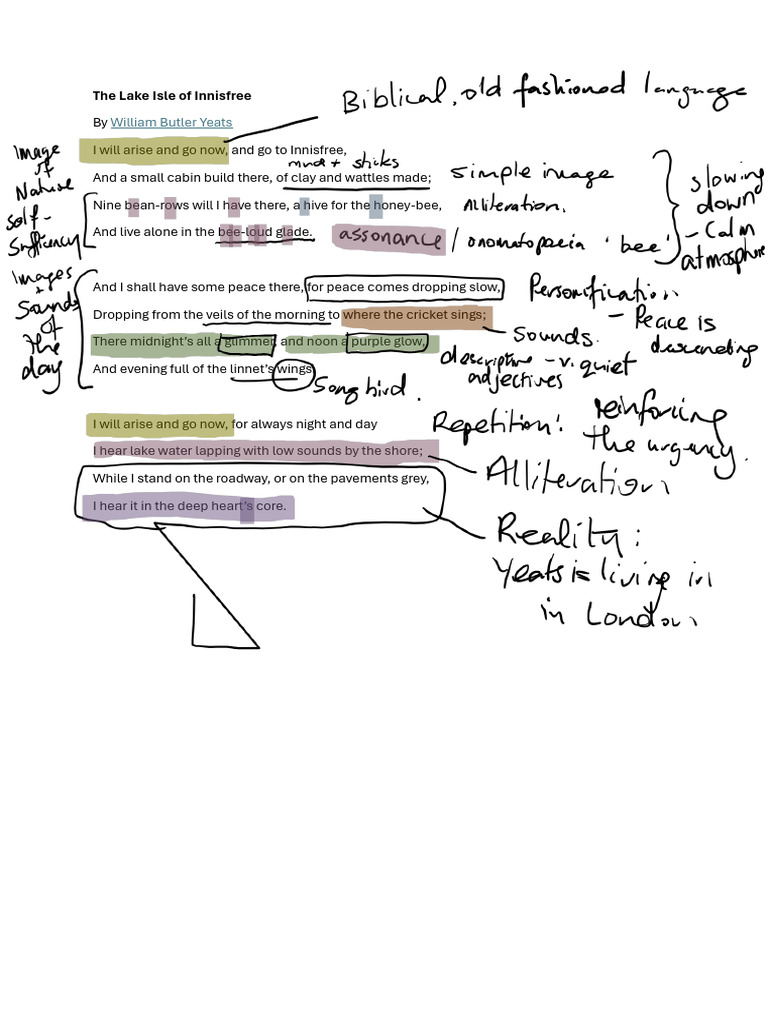 The Lake Isle of Innisfree
Biblical, old fashioned language
By William Butler Yeats
I will arise and go now, and go to Innisfree,
mud + sticks
And a small cabin build there, of clay and wattles made;
simple image
Nine bean-rows will I have there, a hive for the honey-bee,
Alliteration.
And live alone in the bee-loud glade.
assonance / onomatopoeia 'bee'
Image
of
Nature
Self-
Sufficiency
slowing
down
- Calm
atmosphere
And I shall have some peace there, for peace comes dropping slow,
Personification
- Peace is
descending
Dropping from the veils of the morning to where the cricket sings;
- sounds.
There midnight's all a glimmer, and noon a purple glow,
descriptive - v. quiet
adjectives
And evening full of the linnet's wings.
Song bird.
Images
+
Sounds
of
the
day
I will arise and go now, for always night and day
Repetition: reinforcing
the urgency.
I hear lake water lapping with low sounds by the shore;
Alliteration
While I stand on the roadway, or on the pavements grey,
I hear it in the deep heart's core.
Reality:
Yeats is living in
in London